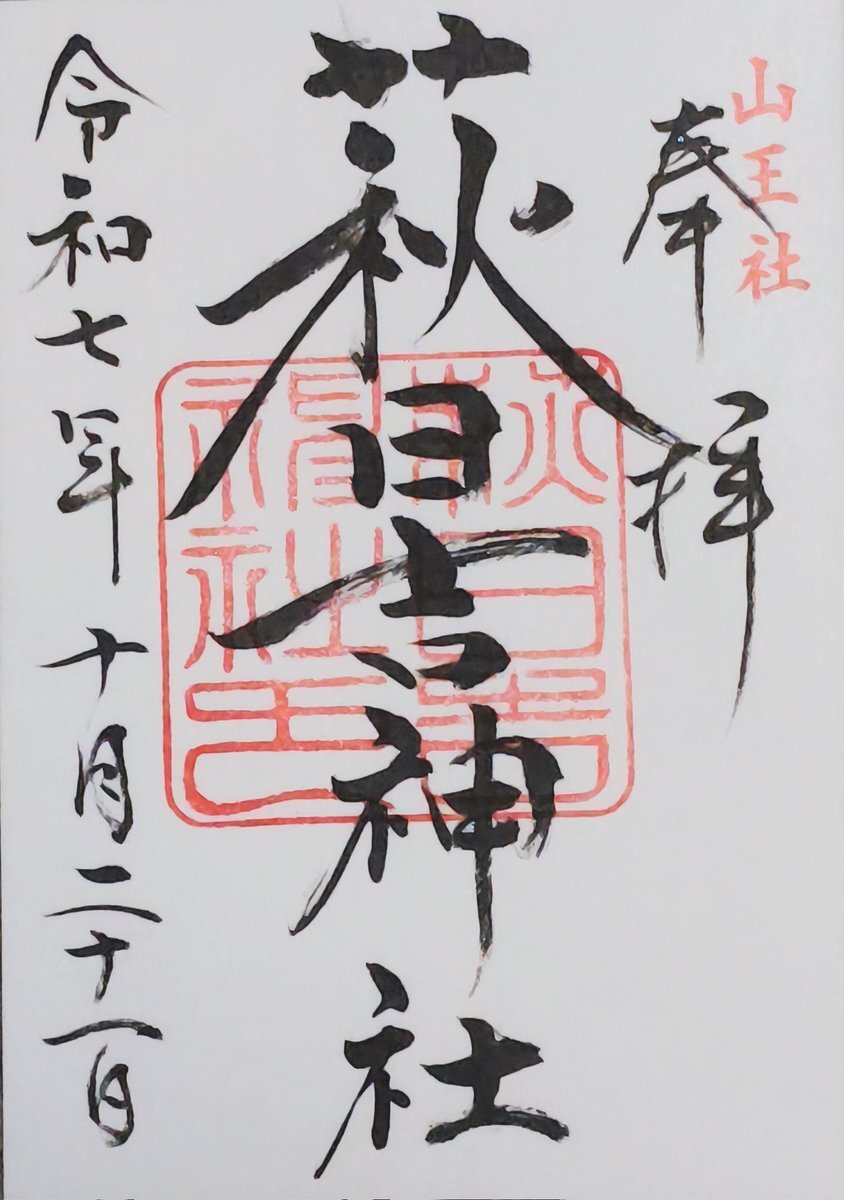 山王社
奉拝
萩日吉神社
萩日吉
令和七年十月二十一日